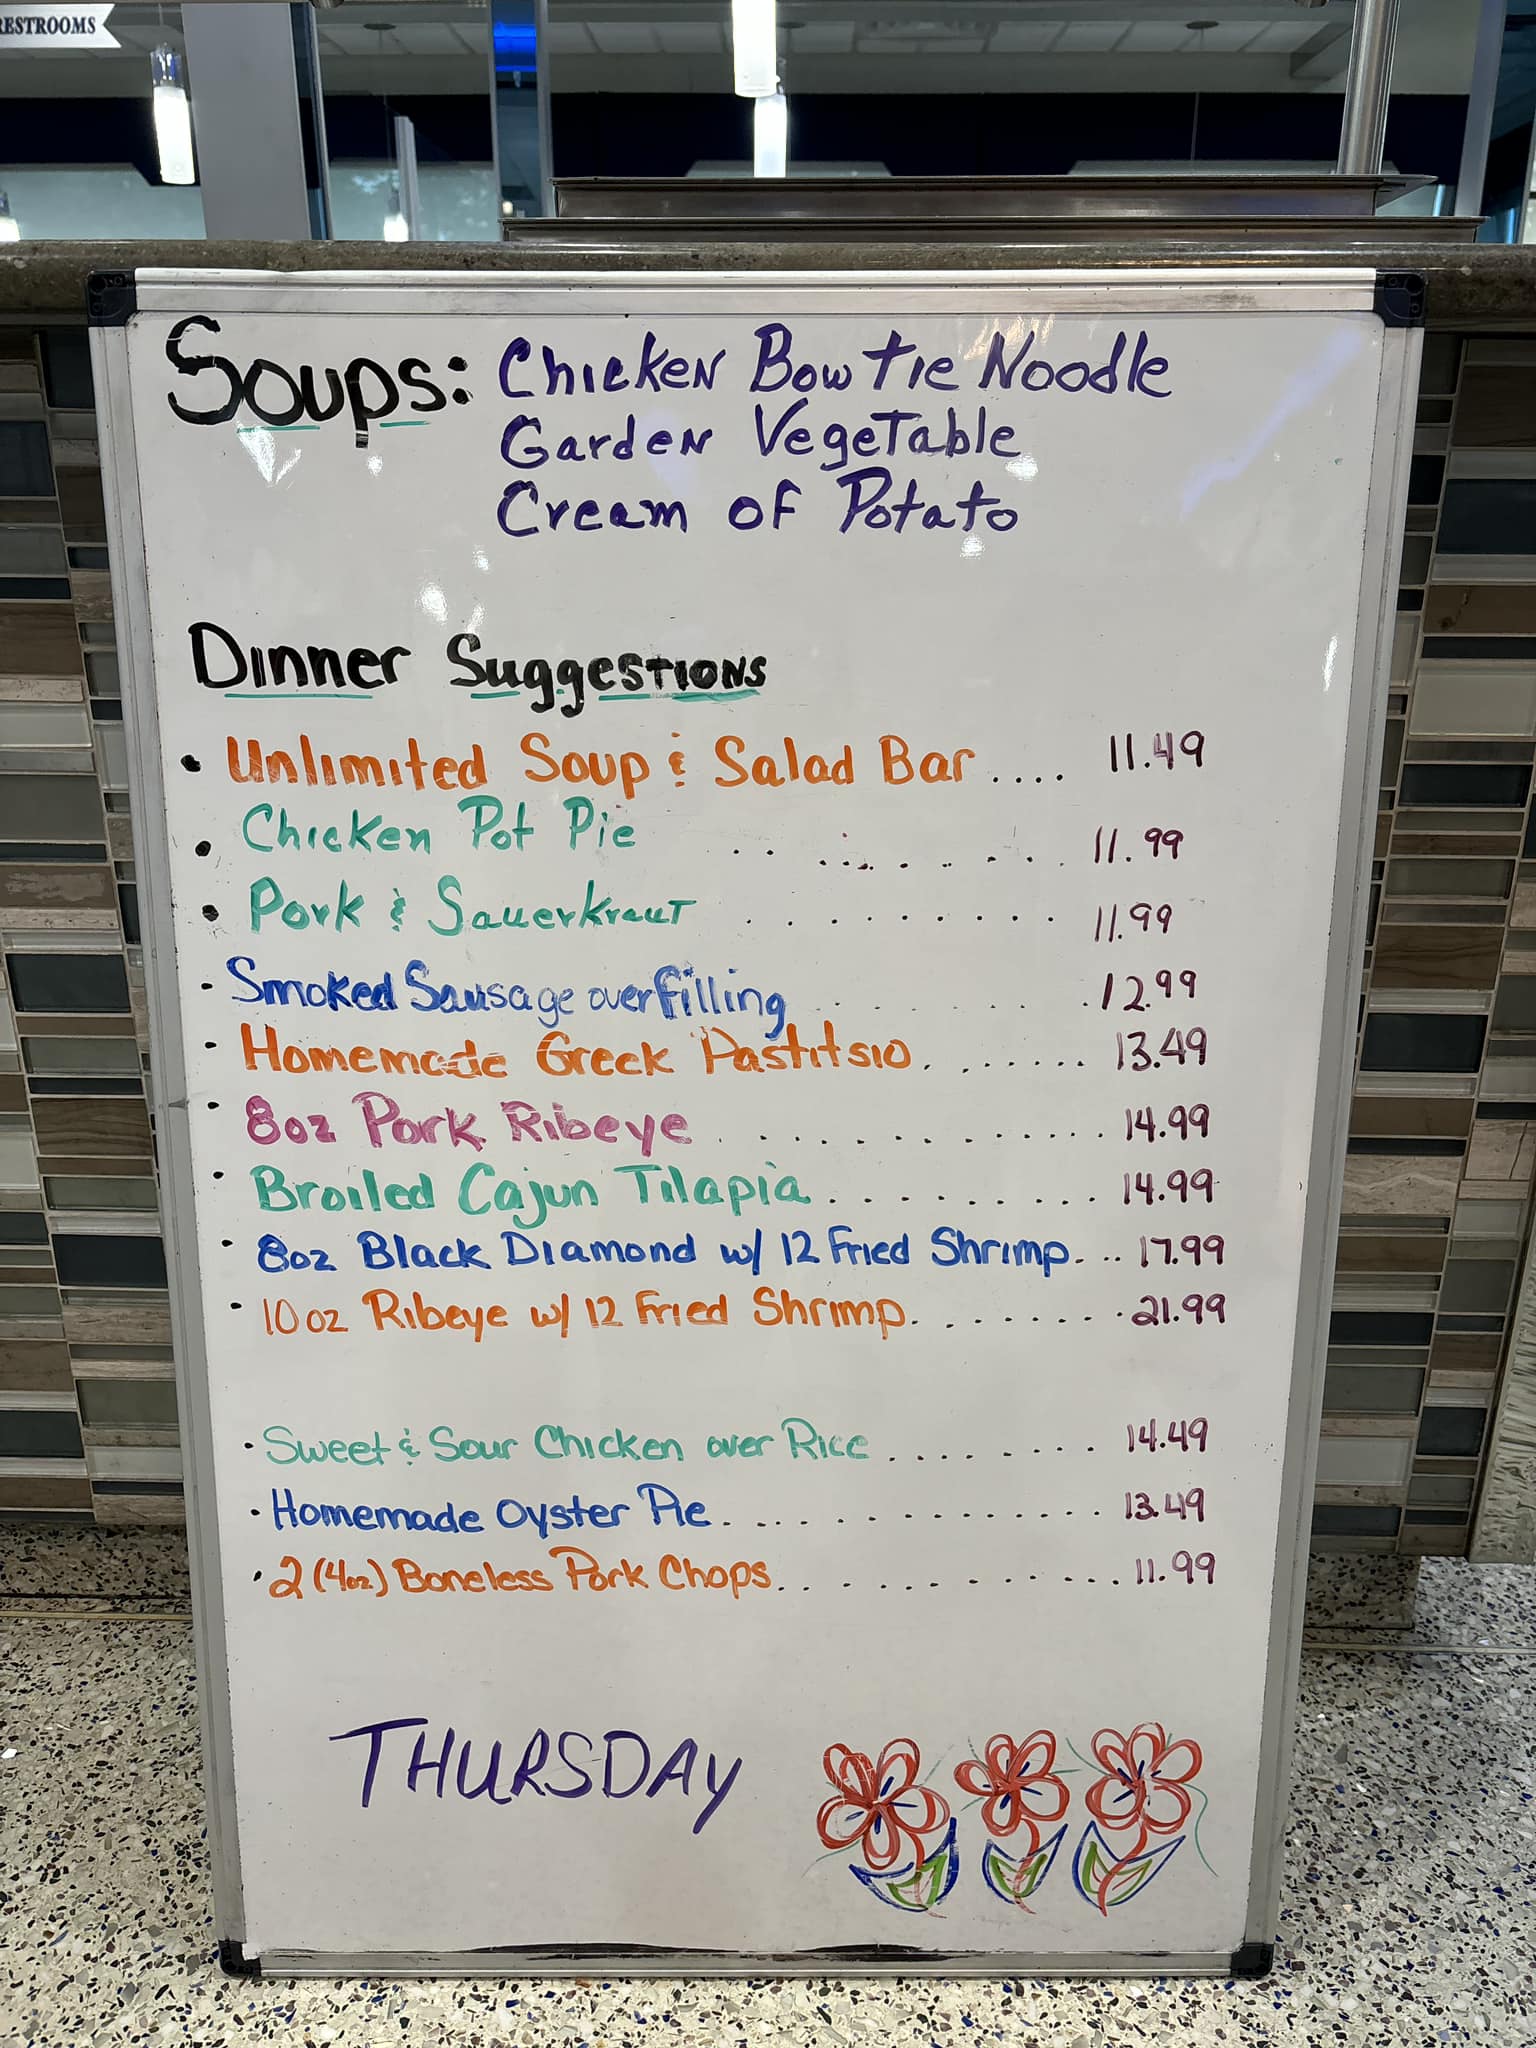 RESTROOMS
Soups: Chicken Bow Tie Noodle
Garden Vegetable
Cream of Potato
Dinner Suggestions
• Unlimited Soup & Salad Bar .... 11.49
• Chicken Pot Pie .. .......... 11.99
• Pork & Sauerkraut .......... 11.99
• Smoked Sausage over filling ...... 12.99
• Homemade Greek Pastitsio ........ 13.49
• 8oz Pork Ribeye ............. 14.99
• Broiled Cajun Tilapia .......... 14.99
• 8oz Black Diamond w/ 12 Fried Shrimp ... 17.99
• 10oz Ribeye w/ 12 Fried Shrimp ......... 21.99
• Sweet & Sour Chicken over Rice ......... 14.49
• Homemade Oyster Pie ............... 13.49
• 2 (4oz) Boneless Pork Chops ............. 11.99
THURSDAY